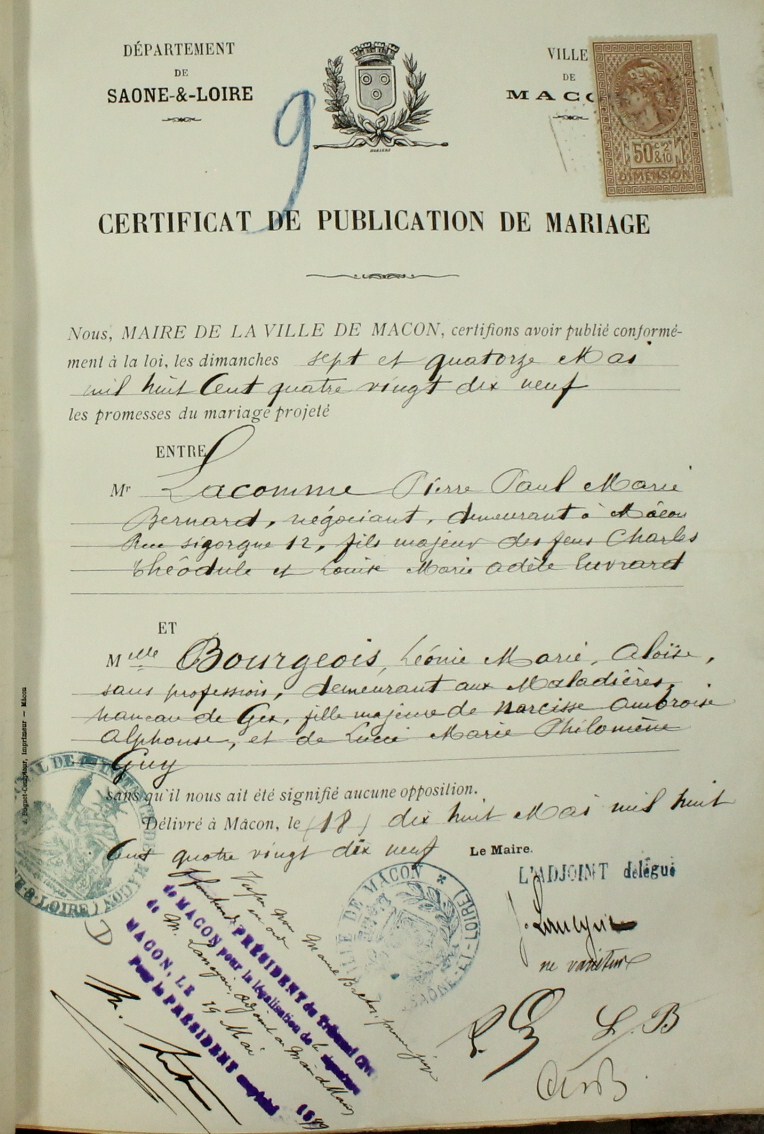 DÉPARTEMENT
DE
SAONE-&-LOIRE
VILLE
DE
MACO
9
50c 2/10
& 10
DIMENSION
CERTIFICAT DE PUBLICATION DE MARIAGE
Nous, MAIRE DE LA VILLE DE MACON, certifions avoir publié conformé-
ment à la loi, les dimanches sept et quatorze Mai
mil huit Cent quatre vingt dix neuf
les promesses du mariage projeté
ENTRE
Mr Lacomme Pierre Paul Marie
Bernard, négociant, demeurant à Mâcon
Rue Sigorgne 12, fils majeur des feus Charles
Théodule et Louise Marie Adèle Euvrard
ET
Melle Bourgeois, Léonie Marie, Aloïse,
sans profession, demeurant aux Maladières,
hameau de Gex, fille majeure de Narcisse Ambroise
Alphonse, et de Lucie Marie Philomène
Guy
sans qu'il nous ait été signifié aucune opposition.
Délivré à Mâcon, le (18) dix huit Mai mil huit
Cent quatre vingt dix neuf
Le Maire.
L'ADJOINT délégué
ne varietur
VILLE DE MACON
(SAÔNE-ET-LOIRE)
PRÉSIDENT du Tribunal Civil
de MACON pour la légalisation de la signature
de M.
MACON, LE 19 Mai 1899
Pour le PRÉSIDENT empêché
L. B
Imprimeur — Mâcon